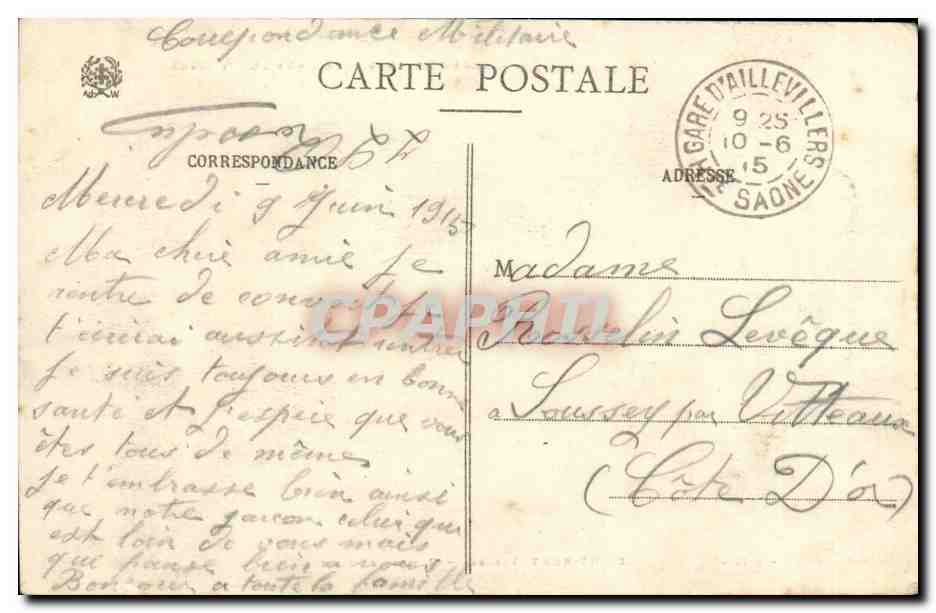 Correspondance Militaire
CARTE POSTALE
CORRESPONDANCE
ADRESSE
GARE D'AILLEVILLERS
9 25
10 -6
15
Hte SAONE
Mercredi 9 Juin 1915
Ma chère amie je
rentre de convoi et je
t'écrirai aussitôt rentrer
Je suis toujours en bonne
santé et j'espère que vous
êtes tous de même
je t'embrasse bien ainsi
que notre garcon celui qui
est loin de vous mais
que panse bien a vous
Bonjour a toute la famille
Madame
Rosselin Levêque
a Soussey par Vitteaux
(Côte D'or)
CPAPHIL